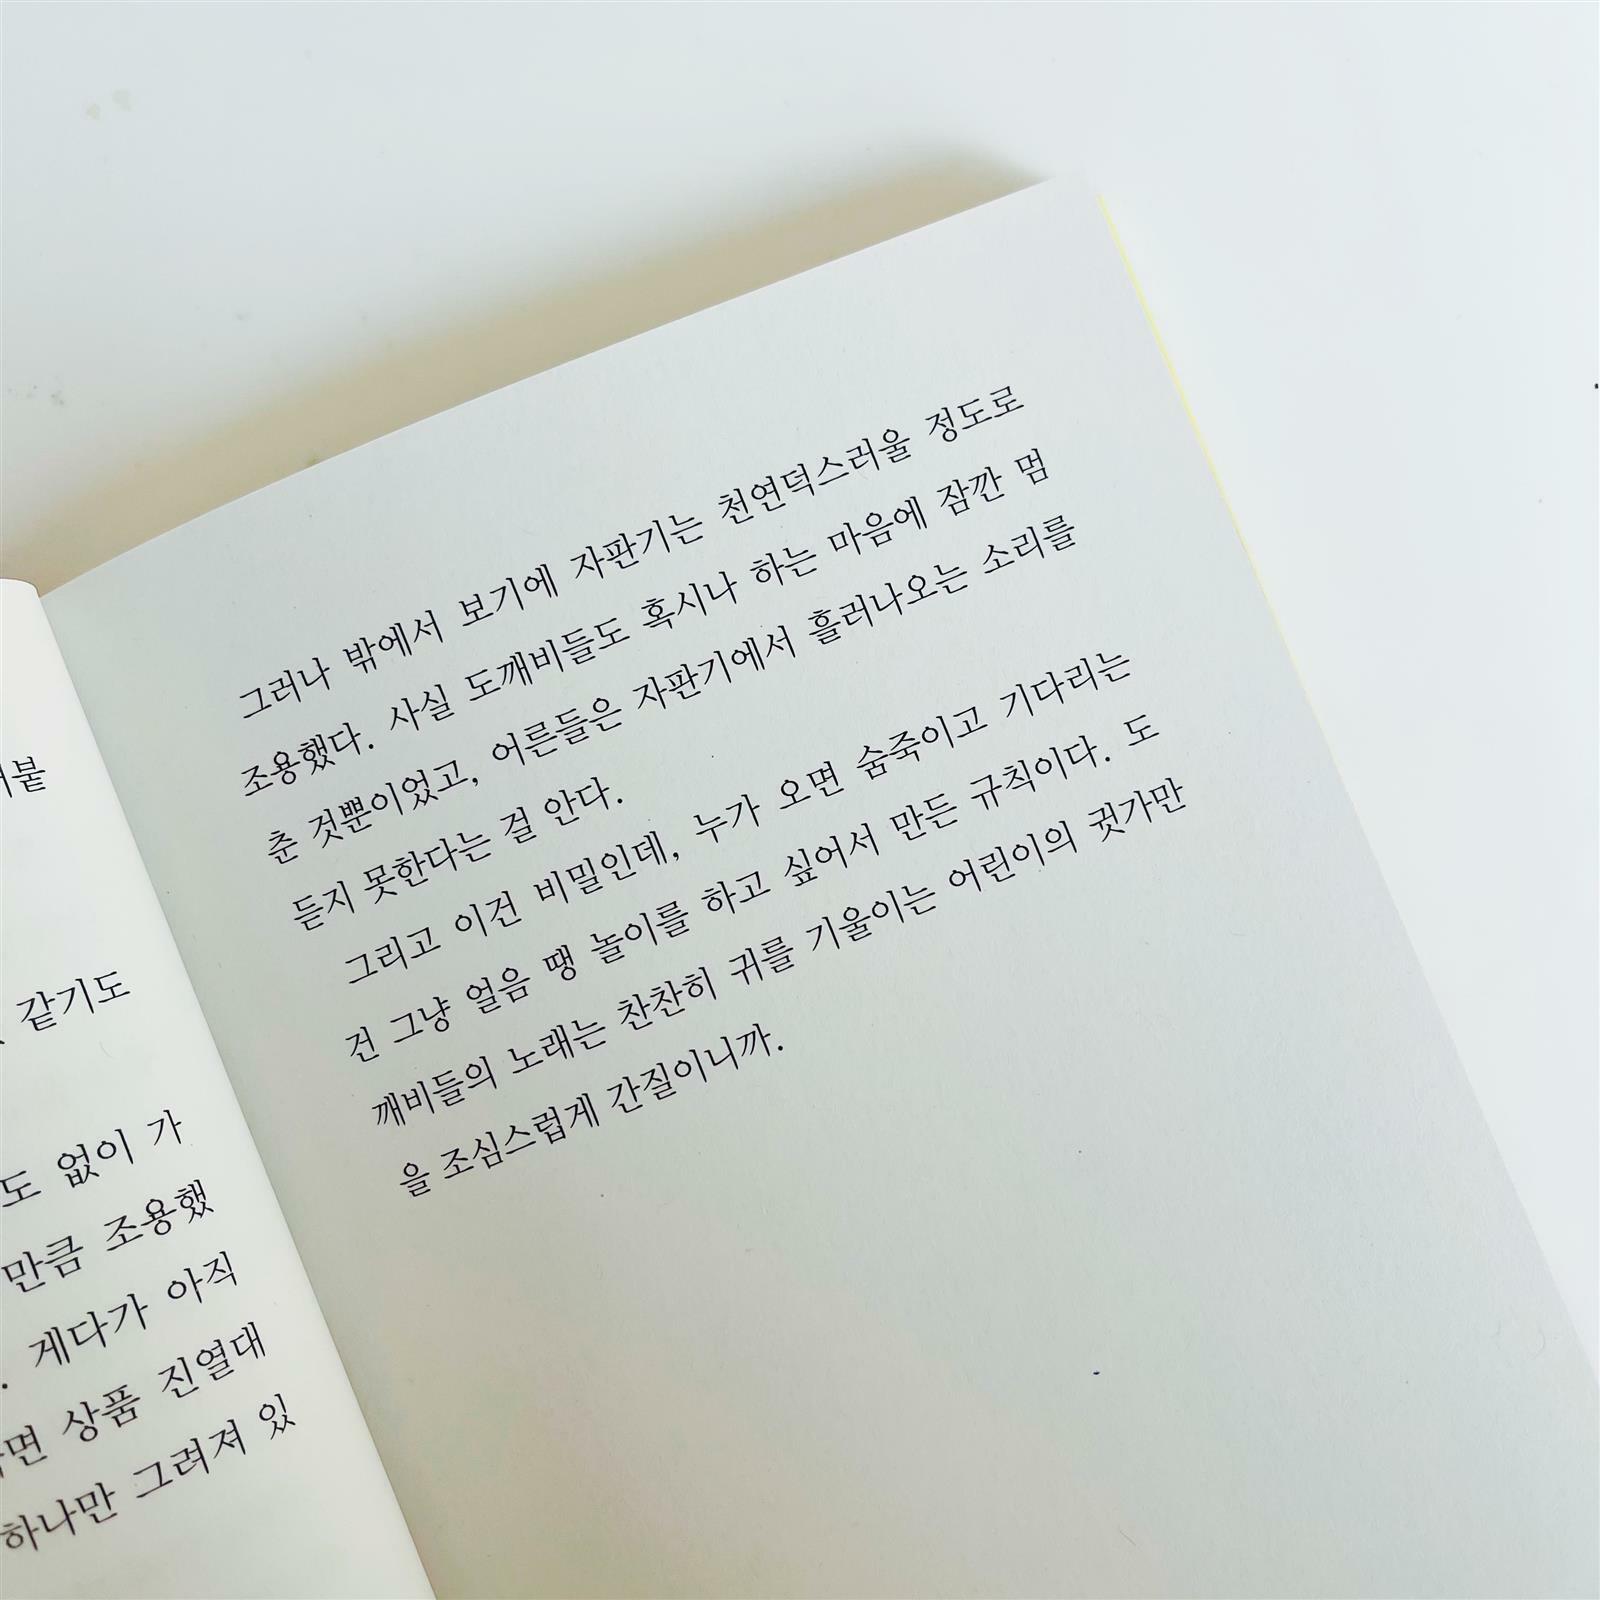 같기도
도 없이 가
만큼 조용했
. 게다가 아직
면 상품 진열대
하나만 그려져 있
그러나 밖에서 보기에 자판기는 천연덕스러울 정도로
조용했다. 사실 도깨비들도 혹시나 하는 마음에 잠깐 멈
춘 것뿐이었고, 어른들은 자판기에서 흘러나오는 소리를
듣지 못한다는 걸 안다.
그리고 이건 비밀인데, 누가 오면 숨죽이고 기다리는
건 그냥 얼음 땡 놀이를 하고 싶어서 만든 규칙이다. 도
깨비들의 노래는 찬찬히 귀를 기울이는 어린이의 귓가만
을 조심스럽게 간질이니까.